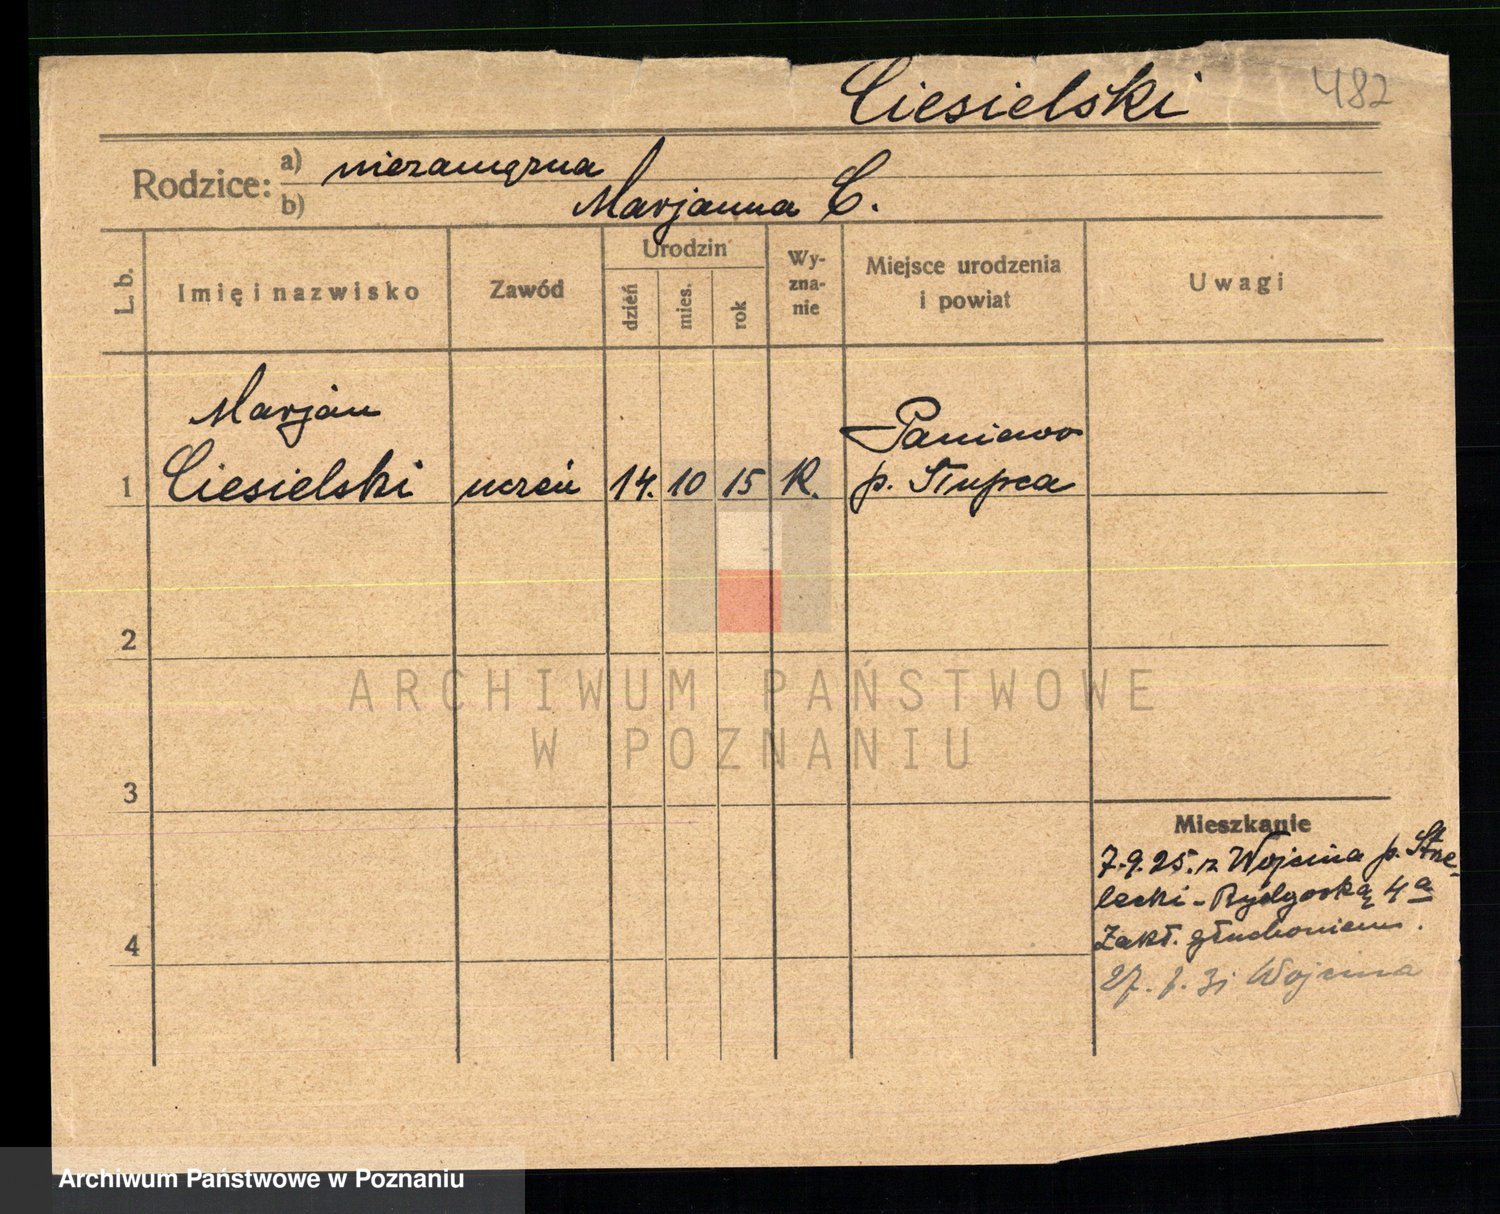 Ciesielski
482
Rodzice: a) niezamężna
b) Marjanna C.
L. b.
Imię i nazwisko
Zawód
Urodzin
dzień
mies.
rok
Wy-
zna-
nie
Miejsce urodzenia
i powiat
Uwagi
Marjan
Ciesielski
1
uczeń
14. 10 15 K.
Paniewo
p. Słupca
2
3
4
Mieszkanie
7.9.25. z Wojcina p. Strze-
lecki - Bydgoską 4a
Zakł. głuchoniem.
27. 7. 31 Wojcina
ARCHIWUM PAŃSTWOWE
W POZNANIU
Archiwum Państwowe w Poznaniu